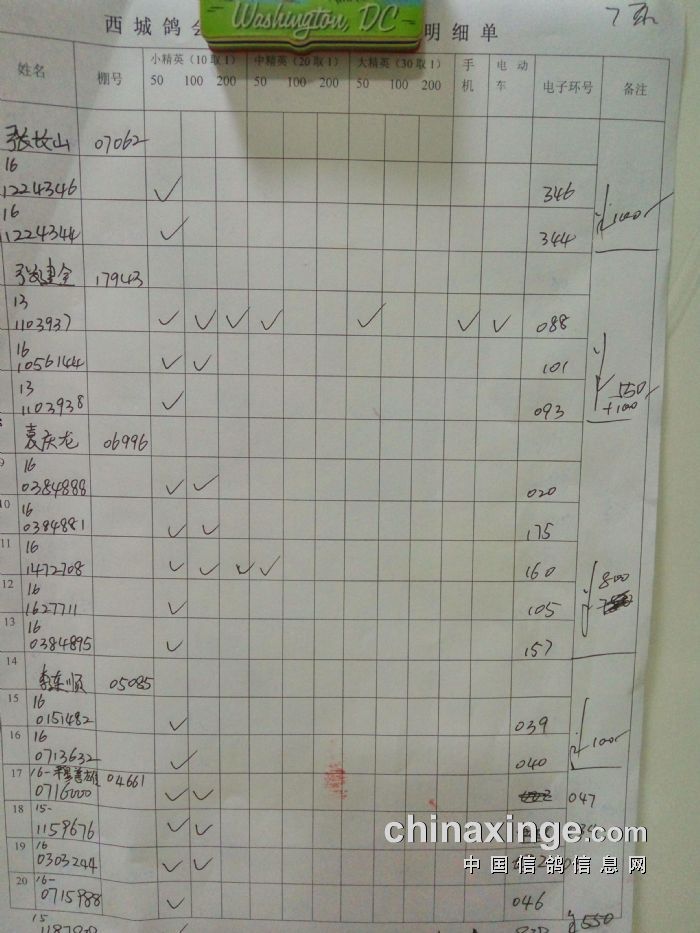 西城鸽会
明细单
7页
Washington, DC
姓名 棚号 小精英（10取1） 中精英（20取1） 大精英（30取1） 手机 电动车 电子环号 备注
50 100 200 50 100 200 50 100 200
张长山 07062
16
1224346 ✓ 346
16
1224344 ✓ 344
100
17943
13
1103937 ✓ ✓ ✓ ✓ ✓ ✓ ✓ 088
16
1056144 ✓ ✓ 101
550
+100
13
1103938 ✓ 093
袁庆龙 06996
9 16
0384888 ✓ ✓ 020
10 16
0384881 ✓ ✓ 175
11 16
1472708 ✓ ✓ ✓ ✓ 160
800
12 16
1627711 ✓ 105
13 16
0384895 ✓ 157
14 李东顺 05085
15 16
0151482 ✓ 039
100
16 16
0713632 ✓ 040
17 16- 04661
0716000 ✓ ✓ 047
18 15-
1159676 ✓ ✓
chinaxinge.com
19 16
0303244 ✓ ✓
中国信鸽信息网
20 16-
0715988 ✓ 046
550
15